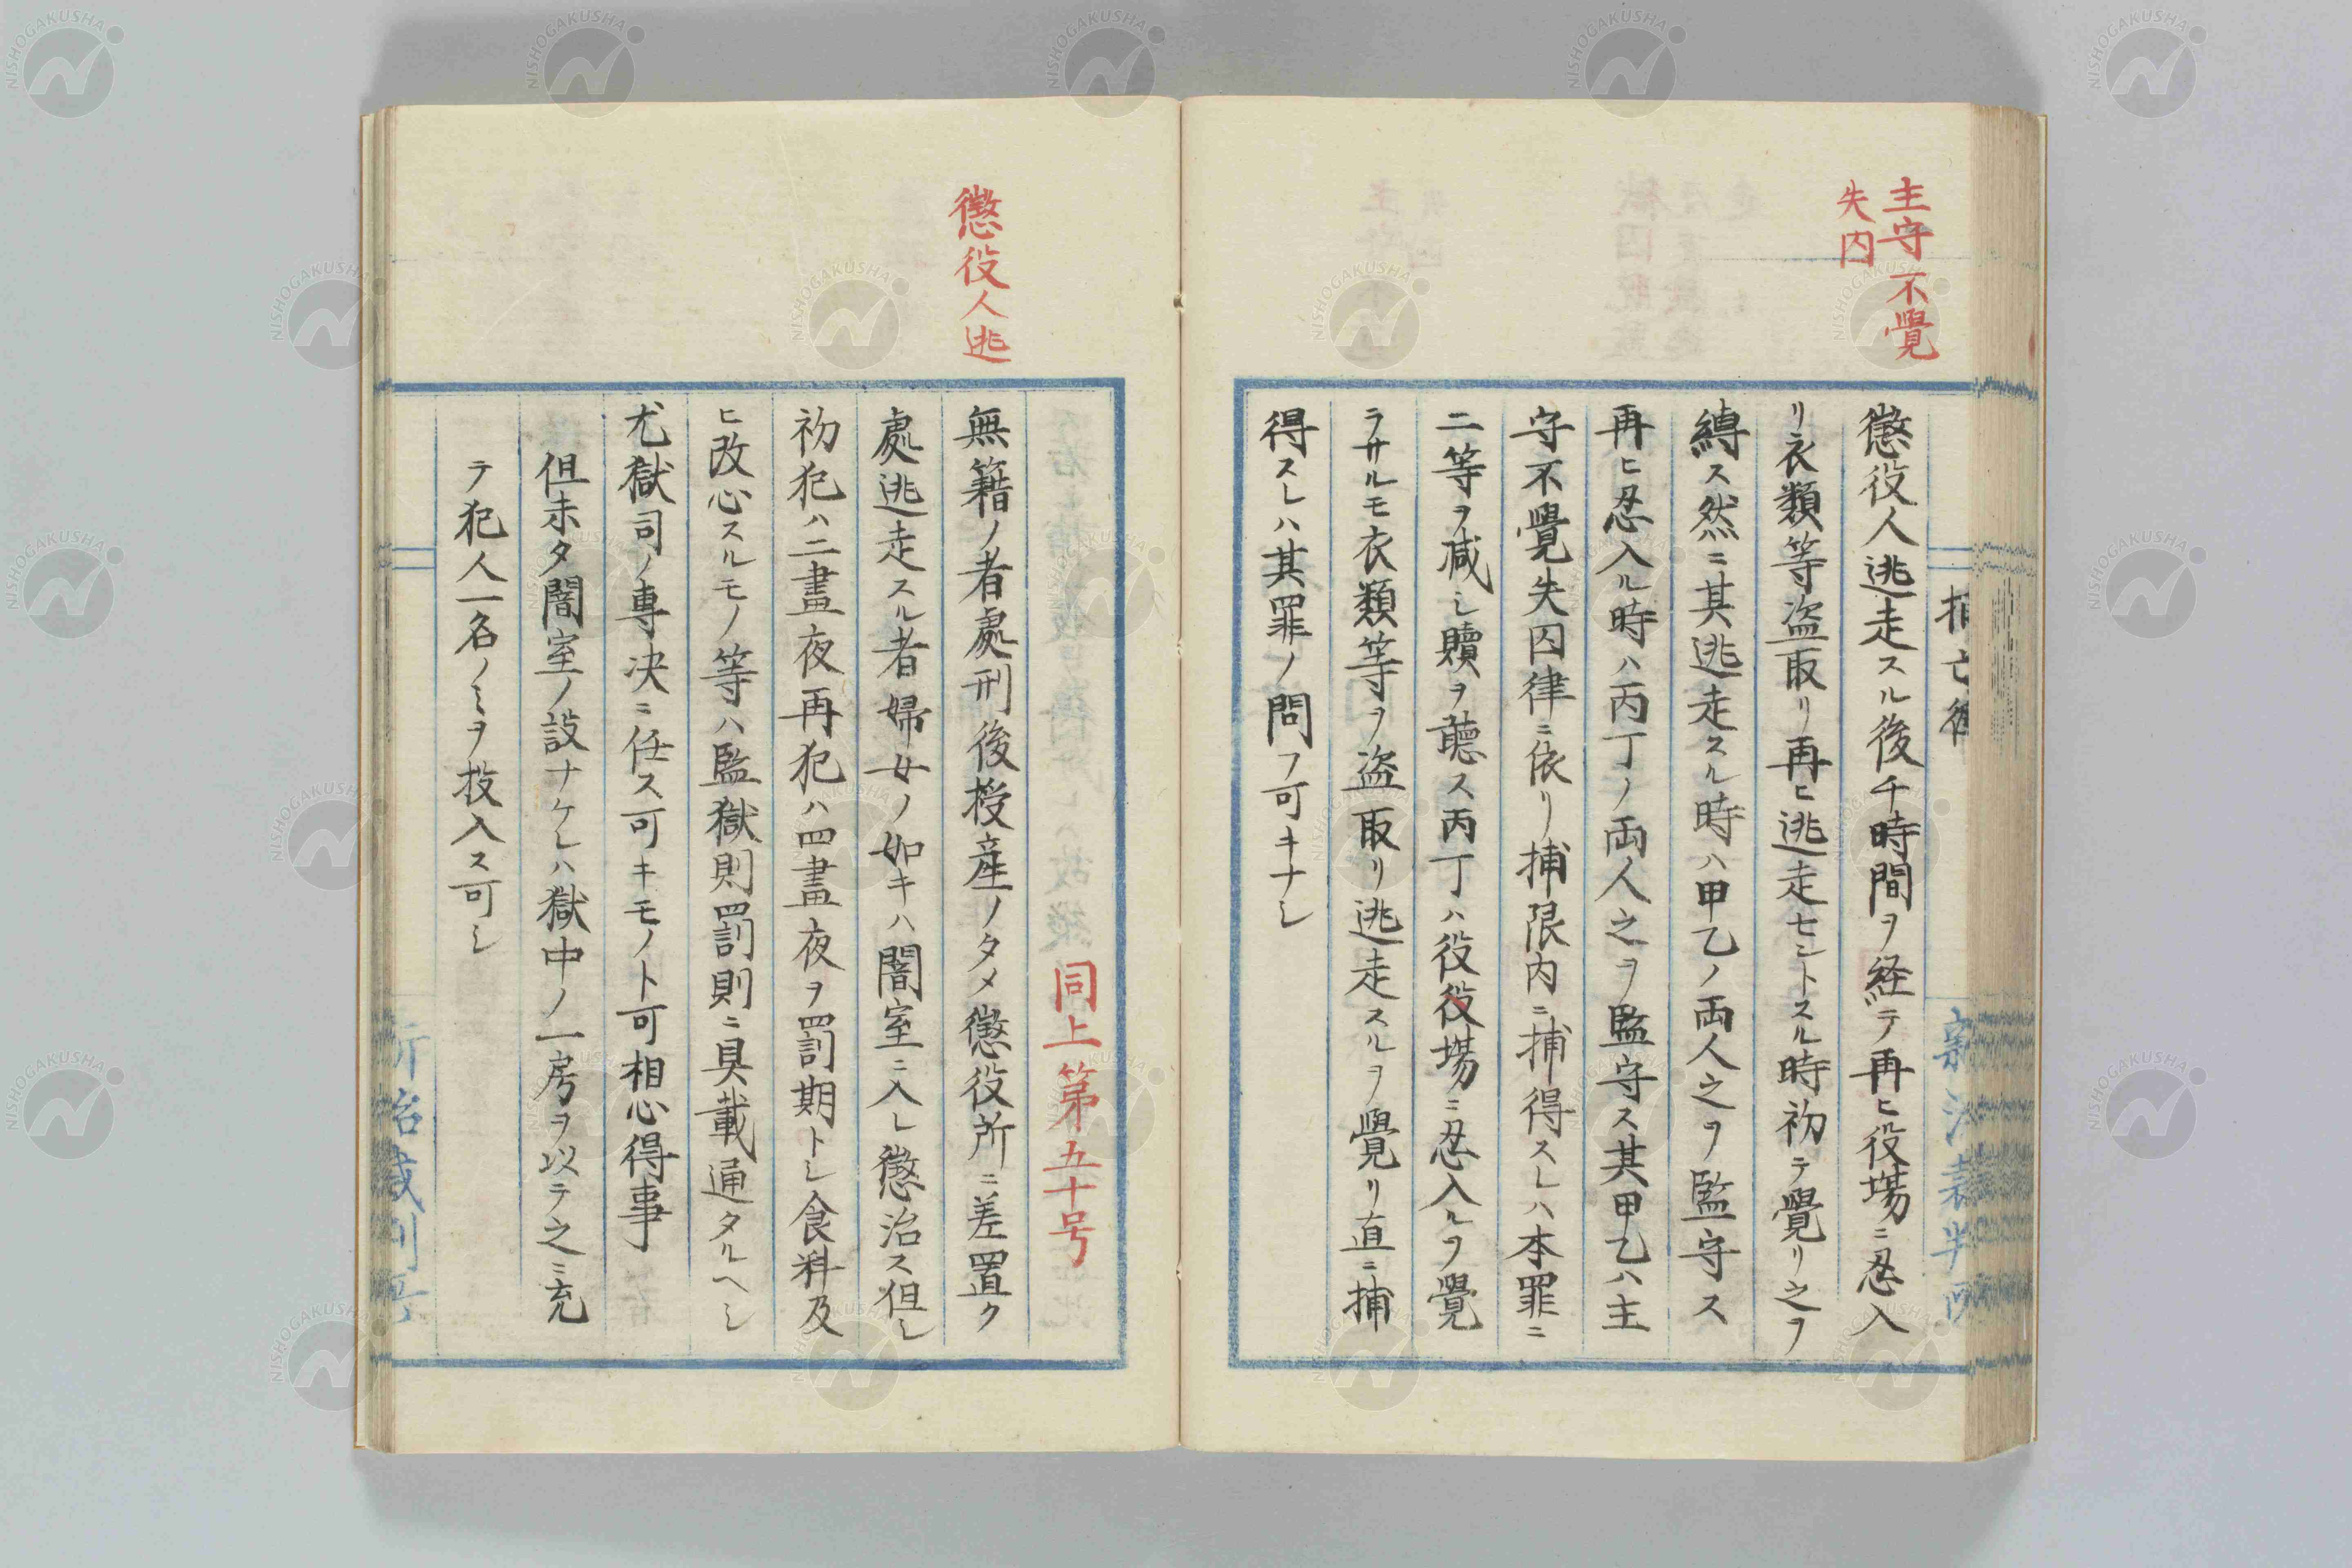 主守不覺
失内
捕亡律
懲役人逃走スル後千時間ヲ経テ再ヒ役場ニ忍入
リ衣類等盗取リ再ヒ逃走セントスル時初テ覺リ之ヲ
縛ス然ニ其逃走スル時ハ甲乙ノ両人之ヲ監守ス
再ヒ忍入ル時ハ丙丁ノ両人之ヲ監守ス其甲乙ハ主
守不覺失囚律ニ依リ捕限内ニ捕得スレハ本罪ニ
二等ヲ減シ贖ヲ聽ス丙丁ハ役役場ニ忍入ルヲ覺
ラサルモ衣類等ヲ盗取リ逃走スルヲ覺リ直ニ捕
得スレハ其罪ノ問フ可キナシ
懲役人逃
同上第五十号
無籍ノ者處刑後授産ノタメ懲役所ニ差置ク
處逃走スル者婦女ノ如キハ闇室ニ入レ懲治ス但シ
初犯ハ二晝夜再犯ハ四晝夜ヲ罰期トシ食料及
ヒ改心スルモノ等ハ監獄則罰則ニ具載通タルヘシ
尤獄司ノ專決ニ任ス可キモノト可相心得事
但未タ闇室ノ設ナケレハ獄中ノ一房ヲ以テ之ニ充
テ犯人一名ノミヲ投入ス可シ
NISHOGAKUSHA